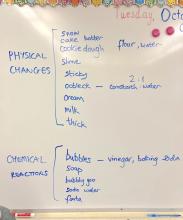 Tuesday, Octo
snow
cake batter
cookie dough flour, water
PHYSICAL CHANGES
slime
sticky
2:1
oobleck — cornstarch water
cream
milk
thick
CHEMICAL REACTIONS
bubbles — vinegar, baking soda
soap
bubbly goo
soda water
fanta